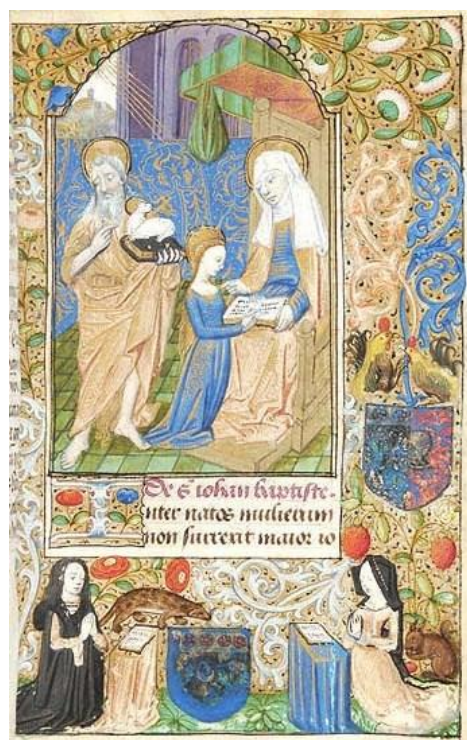 De s̄ iohan baptiste.
Inter natos mulierum
non surrexit maior io